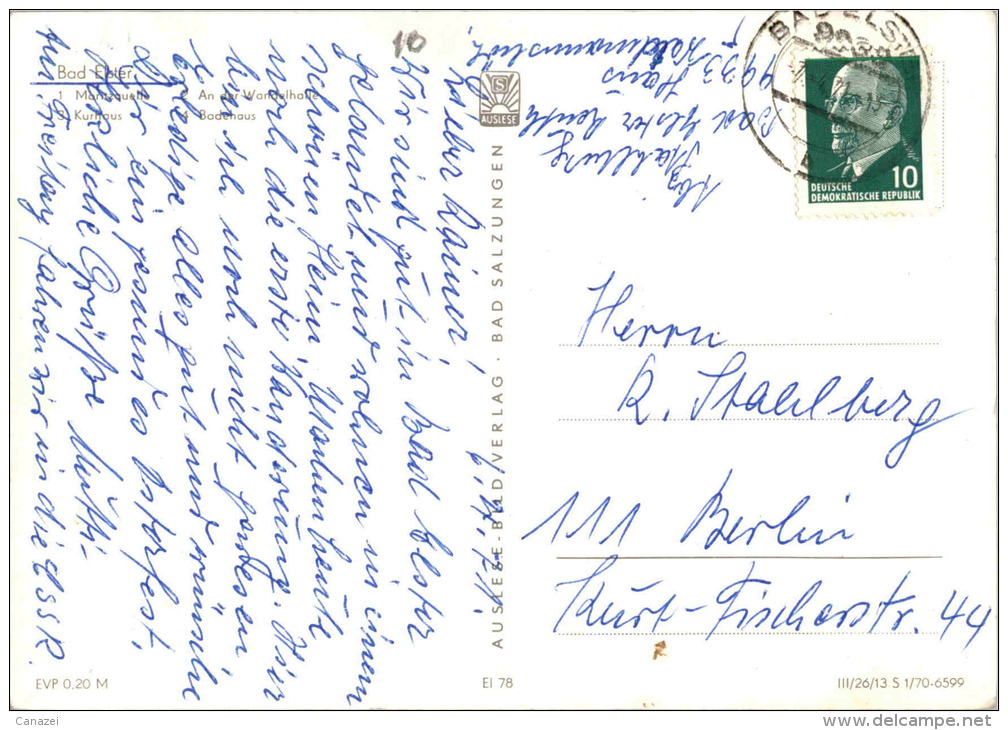 Bad Elster
1 Moritzquelle 2 An der Wandelhalle
3 Kurhaus 4 Badehaus
10
AUSLESE
Abs.
Stahlberg
Bad Elster
9933 Haus
BAD ELST
DEUTSCHE
DEMOKRATISCHE REPUBLIK
10
6.4.71.
Lieber Rainer!
Wir sind gut in Bad Elster
gelandet und wohnen in einem
schönen Heim. Machen heute
noch die erste Wanderung. Wir
haben noch nicht gebadet.
alles gut und wünsche
Dir ein gesundes Osterfest.
Herzliche Grüße Mutti.
Am Freitag fahren wir in die ČSSR.
AUSLESE-BILD-VERLAG · BAD SALZUNGEN
Herrn
R. Stahlberg
111 Berlin
Kurt-Fischerstr. 44
EVP 0,20 M
EI 78
III/26/13 S 1/70-6599
Canazei
delcampe.net